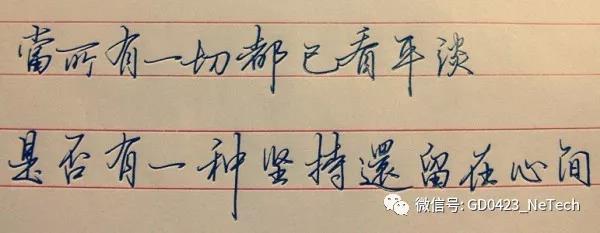 當所有一切都已看平淡
是否有一种坚持還留在心间
微信号: GD0423_NeTech